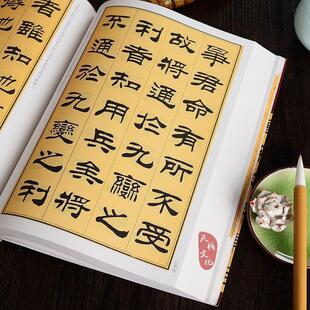 事君命有所不受
故將通於九變之
利者知用兵矣將
不通於九變之利
者雖知地